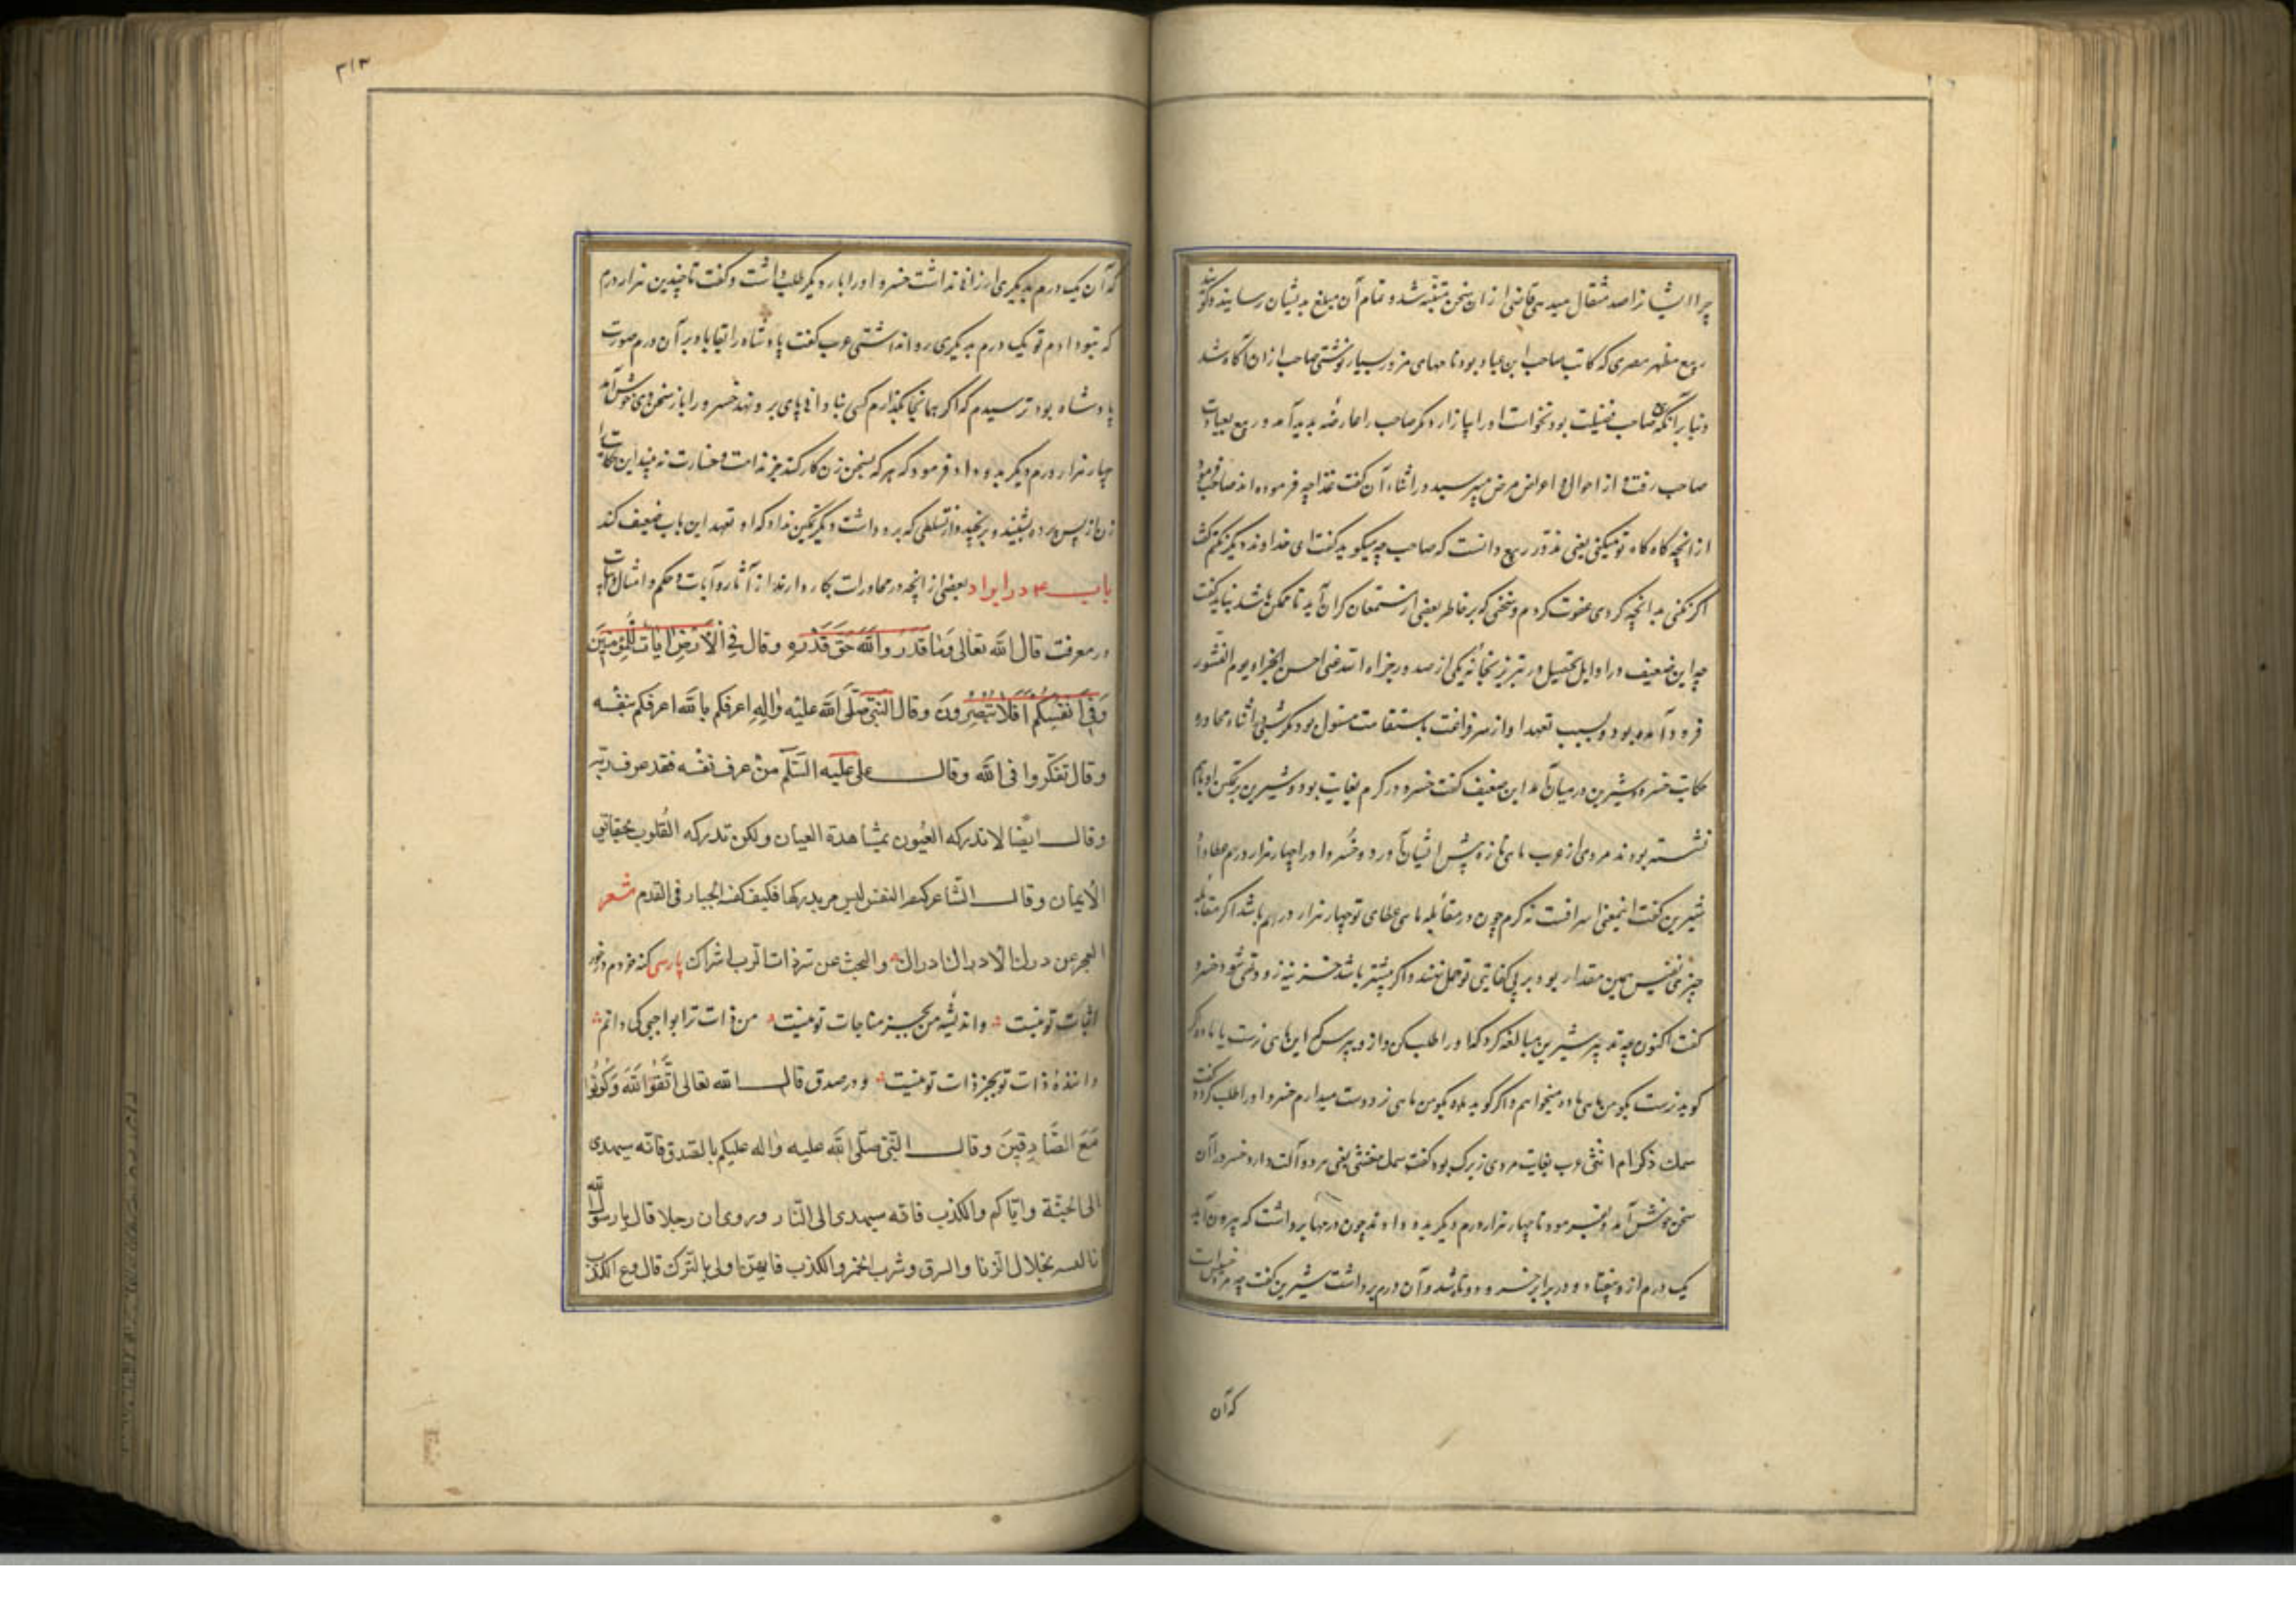 چرا ایشانرا صد مثقال میدهی قاضی ازان سخن متنبه شد و تمام آن مبلغ بدیشان رسانید و گویند
ربیع مطهر مصری که کاتب صاحب ابن عباد بود نامهای مزور بسیار نوشتی صاحب ازان آگاه شد
و بنا برآنکه صاحب فضیلت بود نخواست او را بیازارد مگر صاحب را عارضه پدید آمد و ربیع بعیادت
صاحب رفت و از احوال و اعراض مرض میپرسید در اثناء آن گفت غذا چه فرموده‌اند صاحب فرمود
از آنچه گاه گاه تو میکنی یعنی مزور ربیع دانست که صاحب چه میگوید گفت ای خداوند دیگر نکنم گفت
اگر نکنی بدانچه کردی عفوت کردم و سخنی که بر خاطر بعضی از مستمعان گران آید تا ممکن باشد نباید گفت
چه این ضعیف در اوایل تحصیل در تبریز بخانه یکی از صدور جزاه الله عنی احسن الجزاء یوم النشور
فرود آمده بود و بسبب تعهد او از سر فراغت باستفادت مشغول بود مگر شبی در اثناء محاوره
حکایت خسرو و شیرین در میان آمد این ضعیف گفت خسرو در کرم بغایت بود و شیرین
نشسته بودند مردی از عرب ماهی تازه پیش ایشان آورد و خسرو او را چهار هزار درهم عطا داد
شیرین گفت اینمعنی اسرافست نه کرم چون در مقابله ماهی عطای تو چهار هزار درهم باشد اگر مقابله
چیزی نفیس همین مقدار بود بر بی کفایتی تو حمل نهند و اگر بیشتر باشد خزینه زود تهی شود خسرو
گفت اکنون چه تدبیر شیرین مبالغه کرد که او را طلب کن و ازو بپرس که این ماهی نرست یا ماده اگر
گوید نرست بگو من ماهی ماده میخواهم و اگر گوید ماده بگو من ماهی نر دوست میدارم خسرو او را طلب کرد و گفت
سمك ذکر ام انثی عرب بغایت مردی زیرک بود گفت سمك مخنثی یعنی هر دو آلت دارد خسرو را آن
سخن خوش آمد و بفرمود تا چهار هزار درم دیگر بدو دادند چون درمها برداشت که بیرون آید
یک درم ازو بیفتاد و در برابر خسرو دوتا شد و آن درم برداشت شیرین گفت چه مرد خسیس است
که آن
۳۱۳
که آن یک درم بدیگری ارزانی نداشت خسرو او را بار دیگر طلب داشت و گفت تا چندین هزار درم
که بتو دادم تو یک درم بدیگری روا نداشتی عرب گفت پادشاه را بقا باد بر آن درم صورت
پادشاه بود ترسیدم که اگر همانجا بگذارم کسی بنادانی پای برو نهد خسرو را باز سخن وی خوش آمد
چهار هزار درم دیگر بدو داد و فرمود که هر که بسخن زن کار کند جز ندامت و خسارت نه بیند این حکایت را
زن از پس پرده بشنید و برنجید و از تسلطی که برو داشت دیگر تمکین نداد که او تعهد این ضعیف کند
باب ۴ در ایراد بعضی از آنچه در محاورات بکار دارند از آثار و آیات و حکم و امثال
در معرفت قال الله تعالی وَمٰا قَدَرُوا اللهَ حَقَّ قَدْرِهِ وقال وَفِی الْأَرْضِ آیاتٌ لِلْمُوقِنِینَ
وَفِی أَنْفُسِکُمْ أَفَلَا تُبْصِرُونَ وقال النبی صلّی الله علیه واٰلِهِ اعرفکم بالله اعرفکم بنفسه
وقال تفکروا فی الله وقال علی علیه السّلم منْ عرف نفسه فقد عرف ربّه
وقال ایضا لا تدرکه العیُون بمشاهدة العیان ولکن تدرکه القُلوب بحقائق
الأیمان وقال الشاعر کیفیة النفس لیس المرء یدرکها فکیف کیفیة الجبار فی القدم شعر
العجز عن درك الادراك ادراك والبحث عن سرّ ذات الرب اشراك پارسی کنه خردم در خور
اثبات تو نیست و اندیشه من بجز مناجات تو نیست من ذات ترا بواجبی کی دانم
دانندهٔ ذات تو بجز ذات تو نیست و در صدق قال الله تعالی اتَّقُوا اللهَ وَکُونُوا
مَعَ الصَّادِقِینَ وقال النّبی صلّی الله علیه واله علیکم بالصّدق فانّه یهدی
الی الجنّة وایّاکم والکذب فانّه یهدی الی النّار وروی ان رجلا قال یا رسول الله
انا بخلال الزنا والسرق وشرب الخمر والکذب فایهنّ اولی بالترك قال دع الکذب